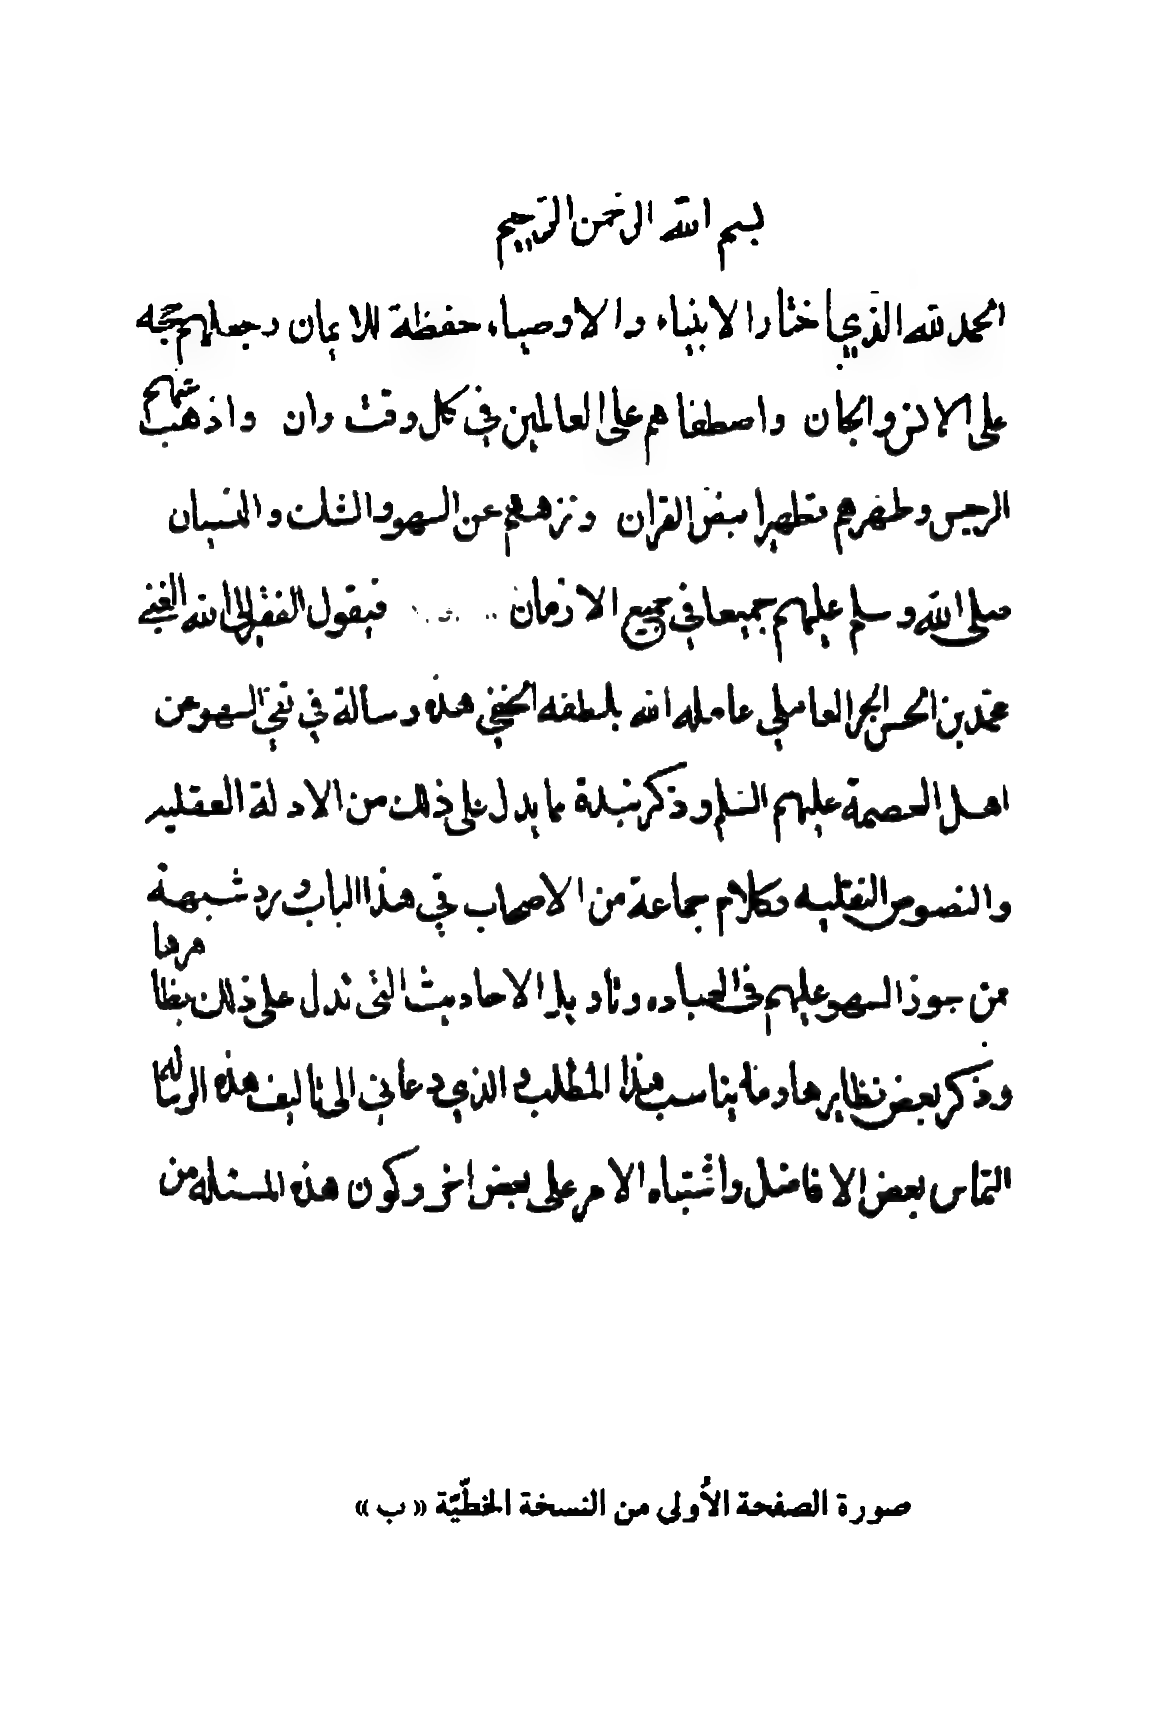 بسم الله الرحمن الرحيم
الحمد لله الذي اختار الانبياء والاوصياء حفظة للايمان وجعلهم حجه
على الانس والجان واصطفاهم على العالمين في كل وقت وان واذهب عنهم
الرجس وطهرهم تطهيرا بنص القران ونزههم عن السهو والشك والنسيان
صلى الله وسلم عليهم جميعا في جميع الازمان فيقول الفقير الى الله الغني
محمد بن الحسن الحر العاملي عامله الله بلطفه الخفي هذه رسالة في نفي السهو عن
اهل العصمة عليهم السلم وذكر نبذة مما يدل على ذلك من الادلة العقليه
والنصوص النقليه وكلام جماعة من الاصحاب في هذا الباب ورد شبهة
من جوز السهو عليهم في العباده وتاويل الاحاديث التي تدل على ذلك بظاهرها
وذكر بعض نظايرها وما يناسب هذا المطلب والذي دعاني الى تاليف هذه الرسالة
التماس بعض الافاضل واشتباه الامر على بعض اخر وكون هذه المسئله من
صورة الصفحة الأولى من النسخة الخطّيّة « ب »